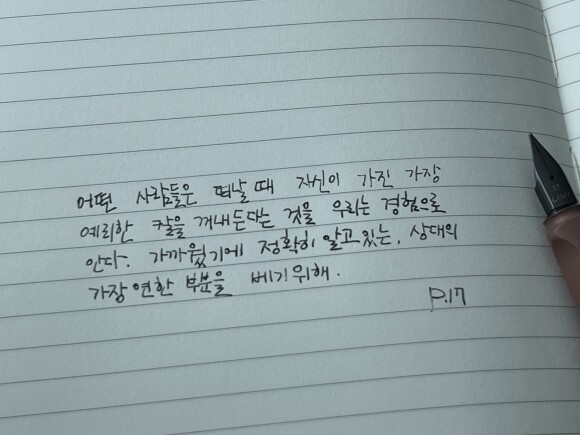 어떤 사람들은 떠날 때 자신이 가진 가장
예리한 칼을 꺼내든다는 것을 우리는 경험으로
안다. 가까웠기에 정확히 알고 있는, 상대의
가장 연한 부분을 베기 위해.
P.17